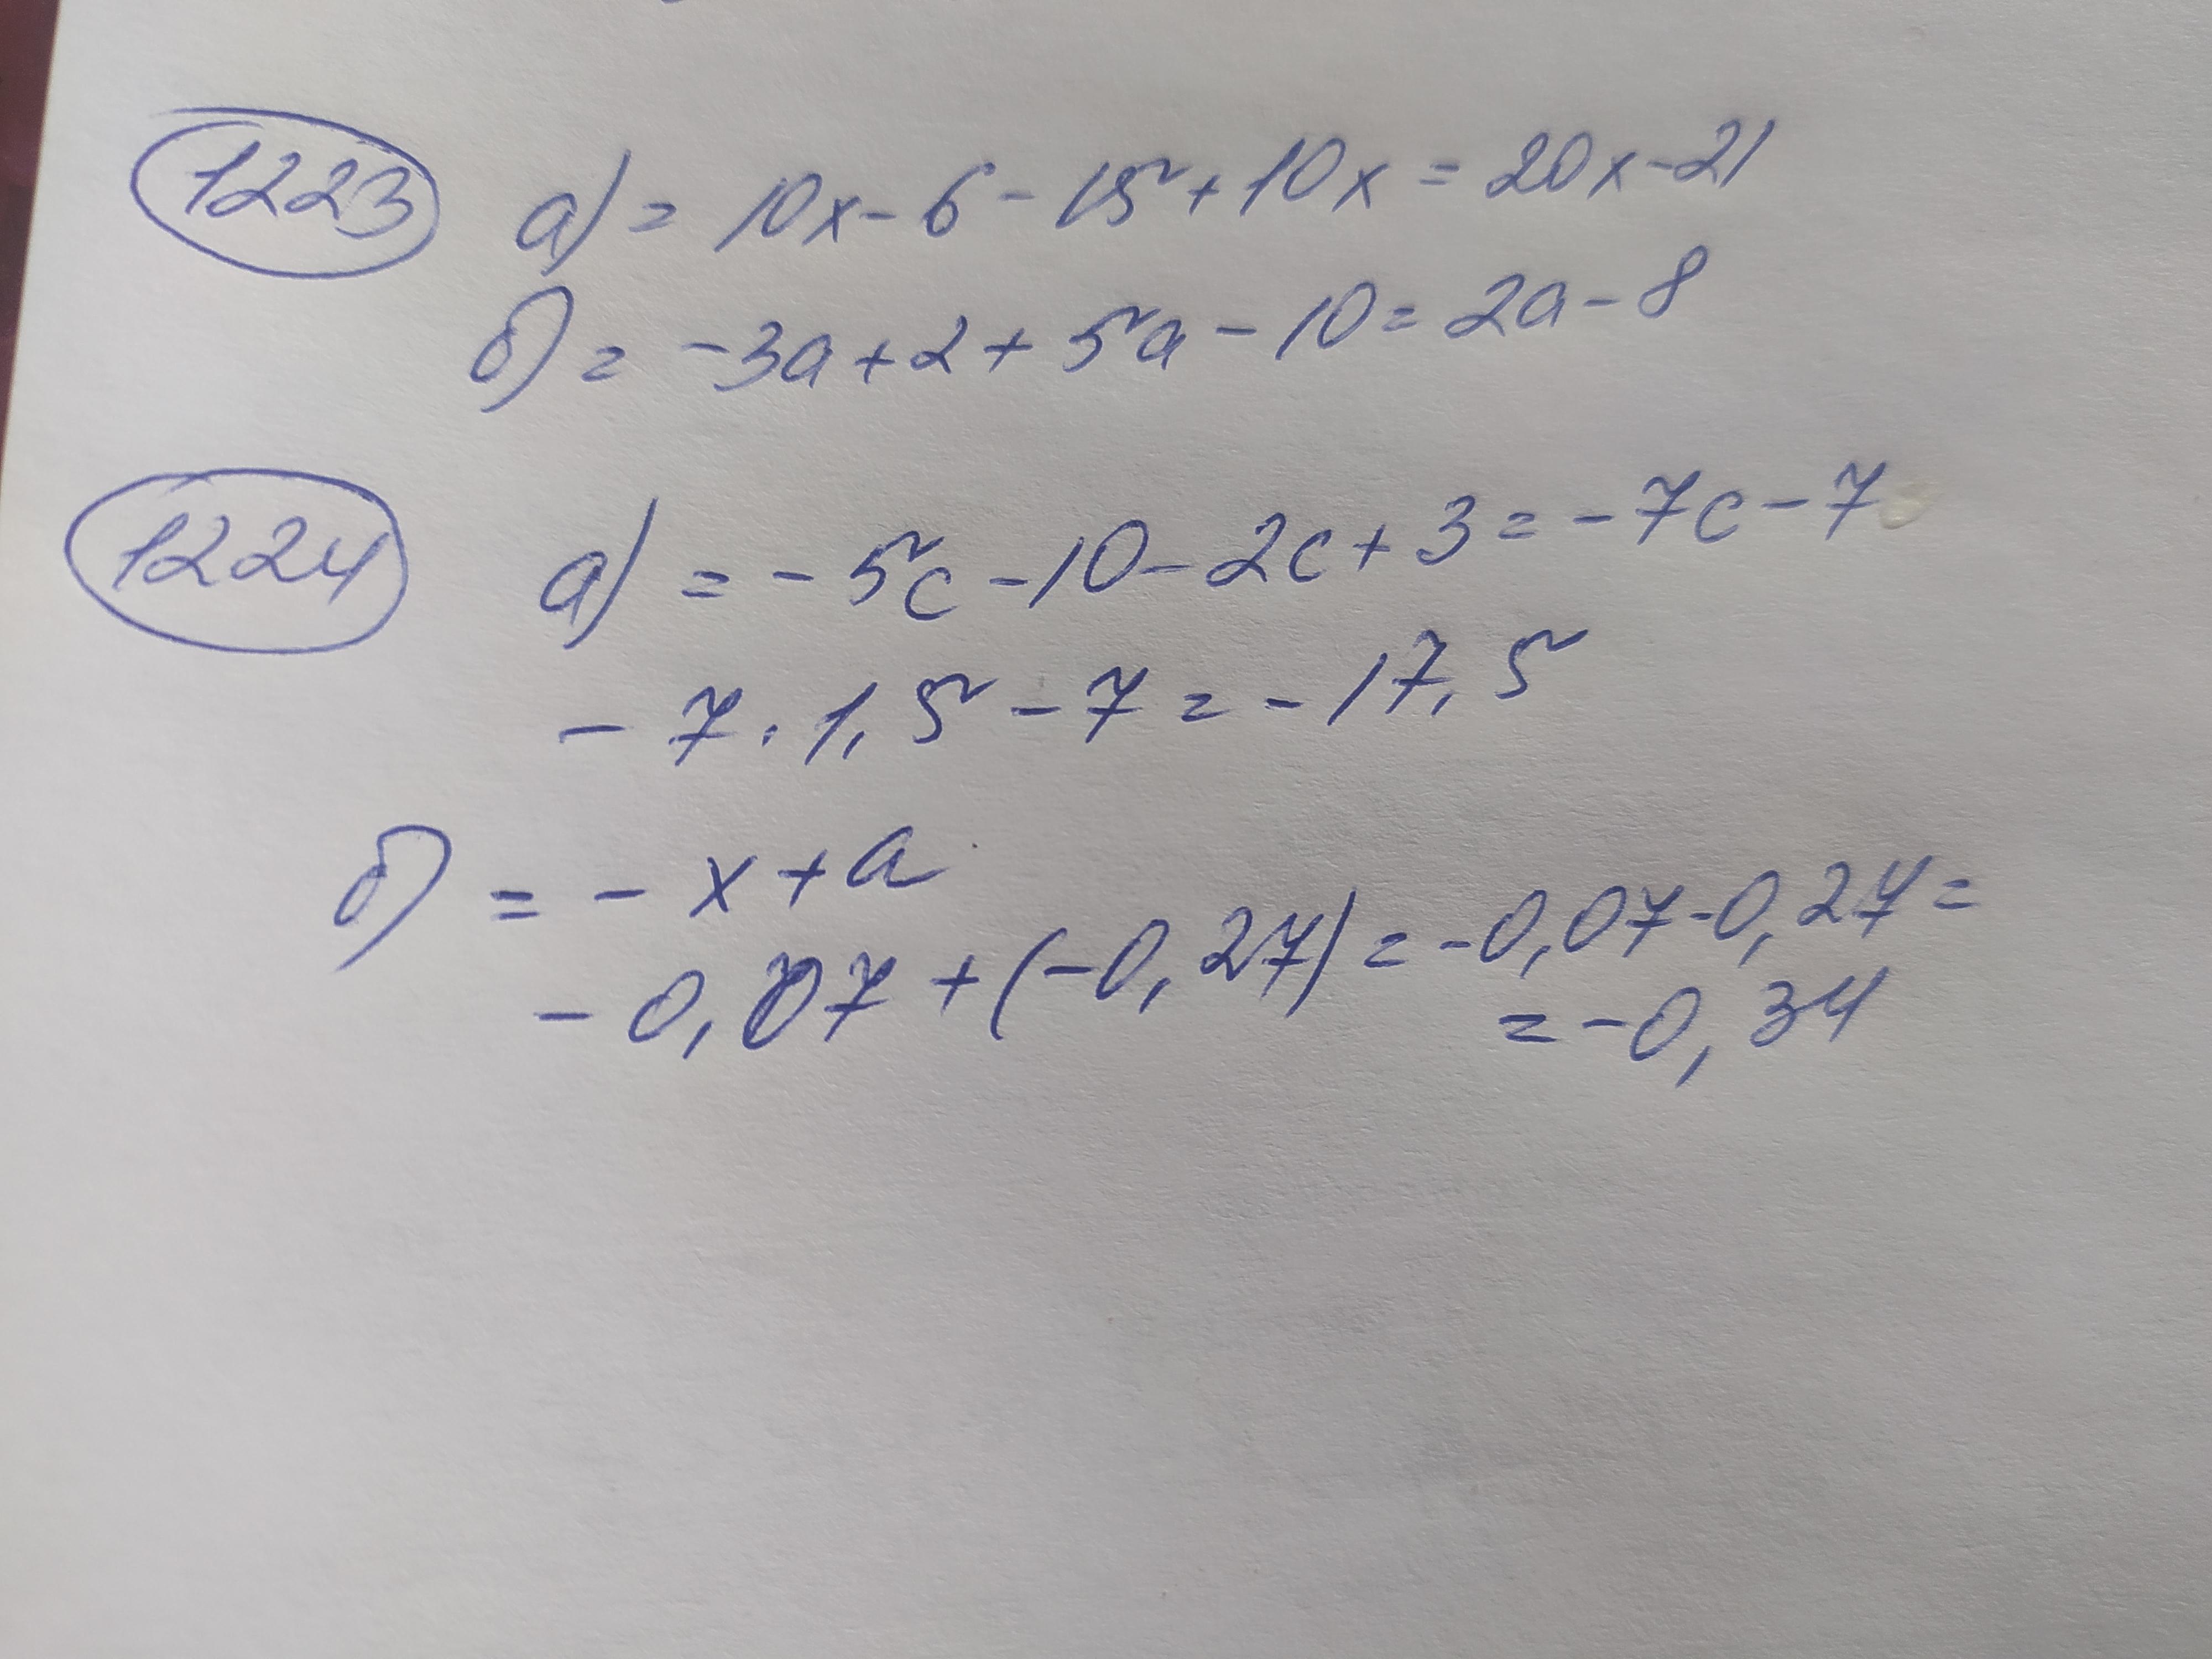 1223 а) = 10x - 6 - 15 + 10x = 20x - 21
б) = -3a + 2 + 5a - 10 = 2a - 8
1224 а) = - 5c - 10 - 2c + 3 = - 7c - 7
- 7 · 1,5 - 7 = - 17,5
б) = - x + a
- 0,07 + (-0,27) = -0,07-0,27 =
= -0,34